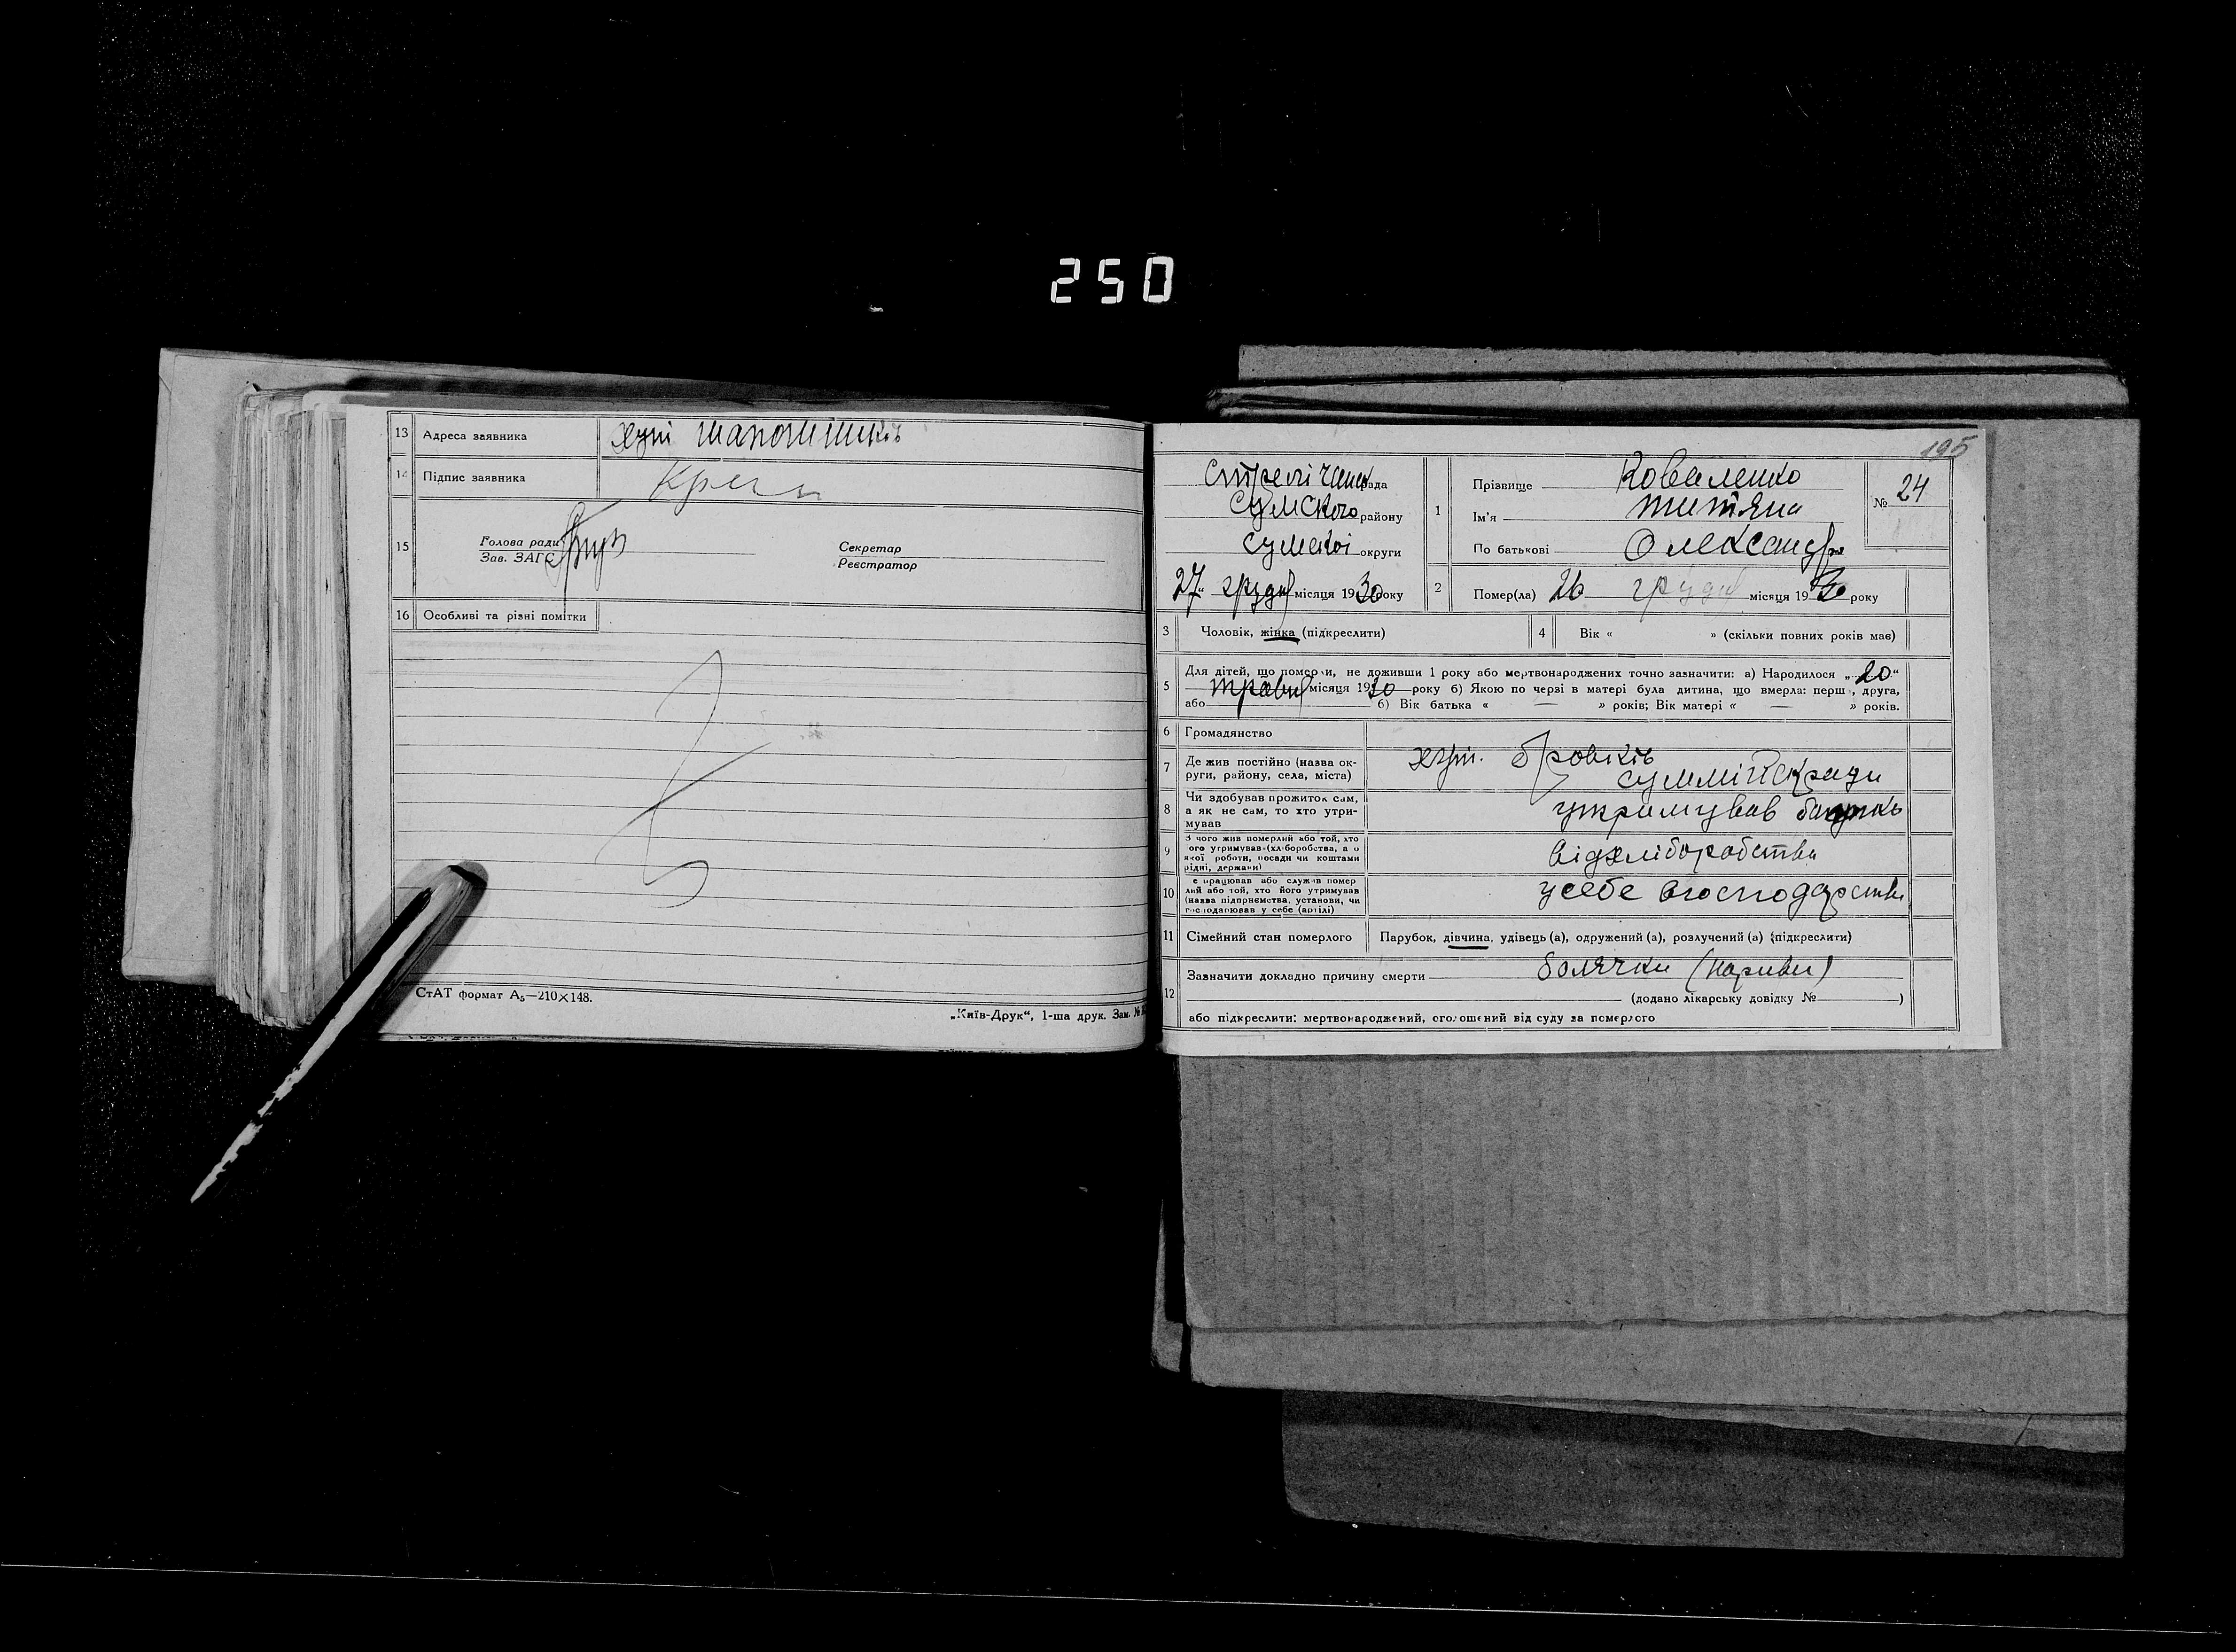 250
13 Адреса заявника хут Шапошників
14 Підпис заявника
15 Голова ради
Зав. ЗАГС
Секретар
Реєстратор
16 Особливі та різні помітки
СтАТ формат А₅—210×148.
„Київ-Друк“, 1-ша друк. Зам. №
195
рада
Сумского району
Сумскої округи
27“ грудня місяця 1930 року
1 Прізвище Коваленко
Ім'я Титяна
По батькові Олександр
№ 24
2 Помер(ла) 26 грудня місяця 1930 року
3 Чоловік, жінка (підкреслити)
4 Вік « » (скільки повних років має)
5 Для дітей, що померли, не доживши 1 року або мертвонароджених точно зазначити: а) Народилося „20“
травня місяця 1930 року б) Якою по черзі в матері була дитина, що вмерла: перш , друга,
або б) Вік батька « — » років; Вік матері « — » років.
6 Громадянство
7 Де жив постійно (назва округи, району, села, міста) хут. Бровків
ради
8 Чи здобував прожиток сам,
а як не сам, то хто утри-
мував утримував батько
9 З чого жив померлий або той, хто
ого утримував (хліборобства, а о
якої роботи, посади чи коштами
рідні, держави) від хліборобства
10 е працював або служив помер
лий або той, хто його утримував
(назва підприємства, установи, чи
господарював у себе (артілі) усебе вгосподарстві
11 Сімейний стан померлого Парубок, дівчина, удівець (а), одружений (а), розлучений (а) (підкреслити)
12 Зазначити докладно причину смерти болячки (нариви)
(додано лікарську довідку № )
або підкреслити: мертвонароджений, оголошений від суду за померлого